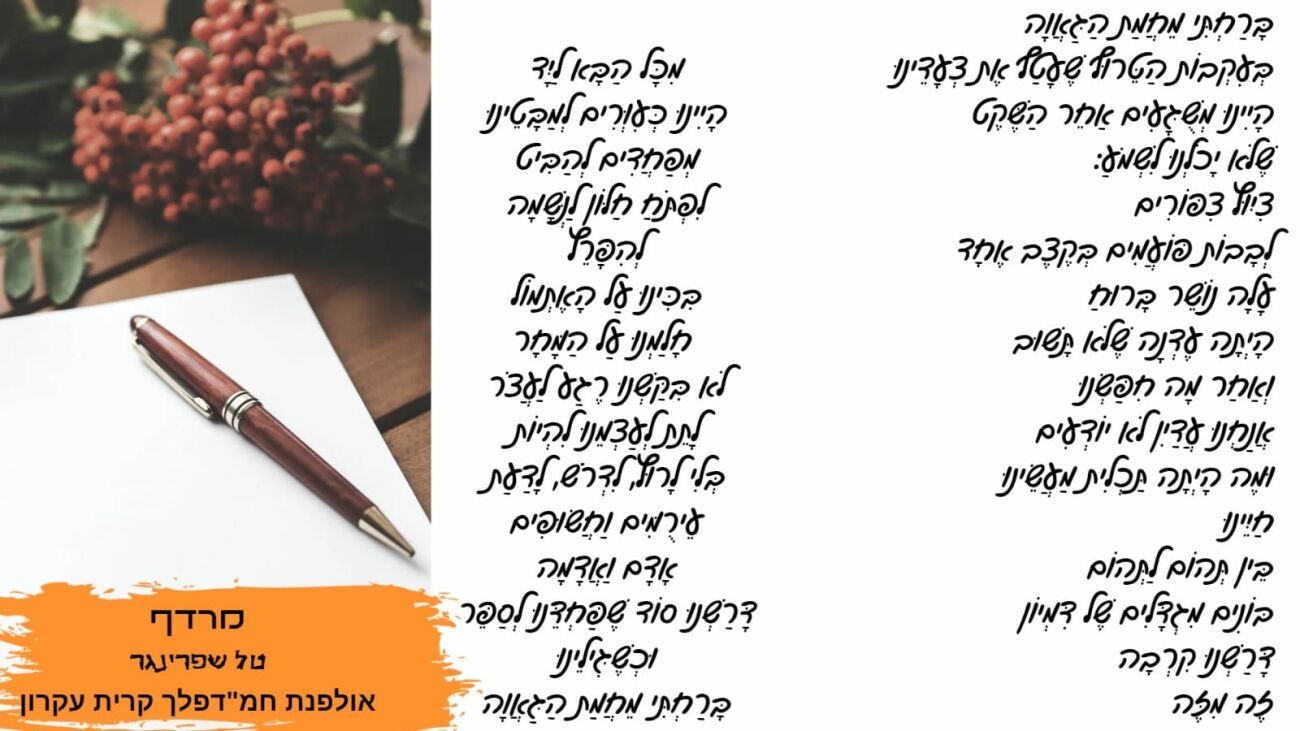 בָּרַחְתִּי מֵחֲמַת הַגַּאֲוָה
בְּעִקְבוֹת הַטֵּרוּף שֶׁעָטַף אֶת צְעָדֵינוּ
הָיִינוּ מְשֻׁגָּעִים אַחַר הַשֶּׁקֶט
שֶׁלֹּא יָכֹלְנוּ לִשְׁמֹעַ:
צִיּוּץ צִפּוֹרִים
לְבָבוֹת פּוֹעֲמִים בְּקֶצֶב אֶחָד
עָלֶה נוֹשֵׁר בָּרוּחַ
הָיְתָה עֶדְנָה שֶׁלֹּא תָּשׁוּב
וְאַחַר מָה חִפַּשְׂנוּ
אֲנַחְנוּ עֲדַיִן לֹא יוֹדְעִים
וּמֶה הָיְתָה תַּכְלִית מַעֲשֵׂינוּ
חַיֵּינוּ
בֵּין תְּהוֹם לַתְּהוֹם
בּוֹנִים מִגְדָּלִים שֶׁל דִּמְיוֹן
דָּרַשְׁנוּ קִרְבָה
זֶה מִזֶּה
מִכָּל הַבָּא לַיָּד
הָיִינוּ כְּעִוְּרִים לְמַבָּטֵינוּ
מְפַחֲדִים לְהַבִּיט
לִפְתֹּחַ חַלּוֹן לַנְּשָׁמָה
לְהִפָּרֵץ
בָּכִינוּ עַל הָאֶתְמוֹל
חָלַמְנוּ עַל הַמָּחָר
לֹא בִּקַּשְׁנוּ רֶגַע לַעֲצֹר
לָתֵת לְעַצְמֵנוּ לִהְיוֹת
בְּלִי לָרוּץ, לִדְרֹשׁ, לָדַעַת
עֵירֻמִּים וַחֲשׂוּפִים
אָדָם וַאֲדָמָה
דָּרַשְׁנוּ סוֹד שֶׁפַּחַדֵנוּ לְסַפֵּר
וּכְשֶׁגִּילֵינוּ
בָּרַחְתִּי מֵחֲמַת הַגַּאֲוָה
מרדף
טל שפרינגר
אולפנת חמ"דפלך קרית עקרון